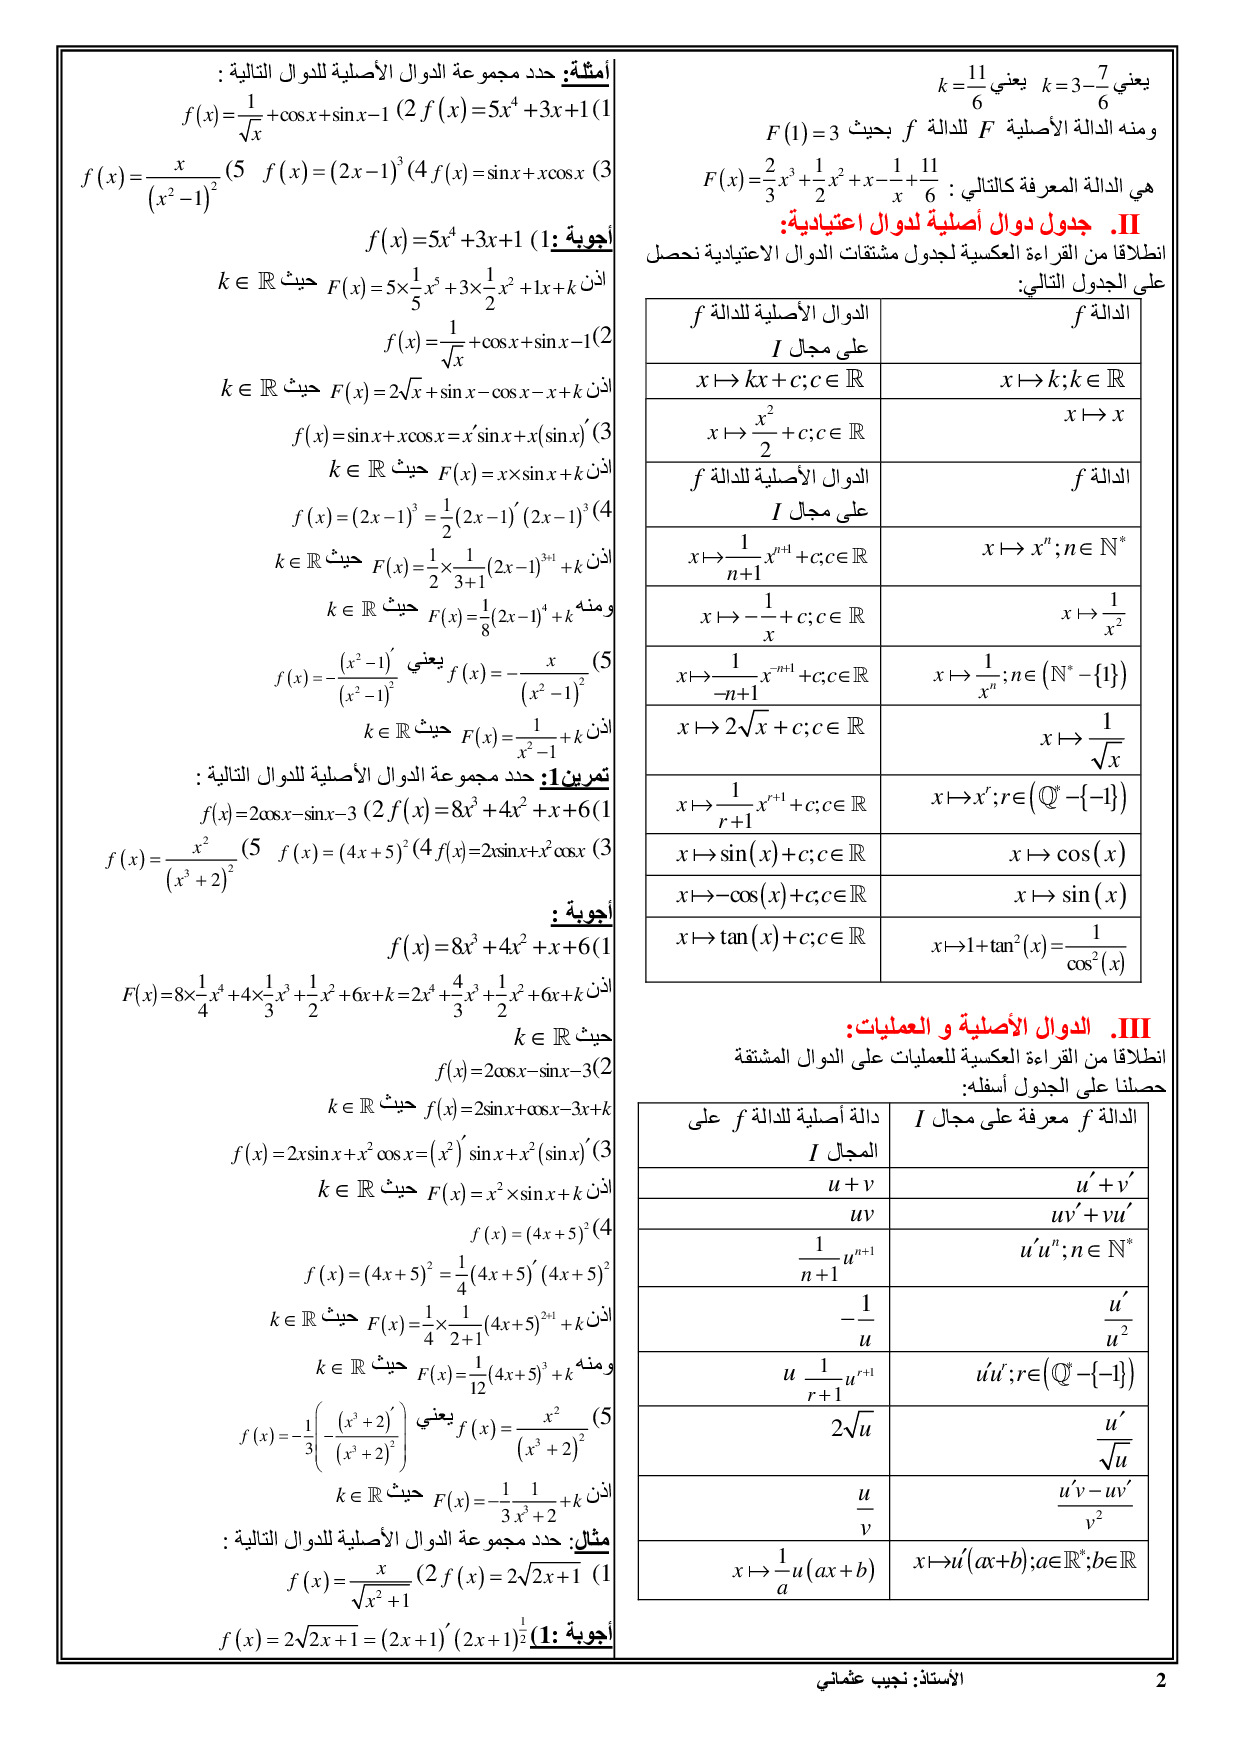 يعني k = 3 − 7/6 يعني k = 11/6
ومنه الدالة الأصلية F للدالة f بحيث F(1) = 3
هي الدالة المعرفة كالتالي : F(x) = 2/3 x³ + 1/2 x² + x − 1/x + 11/6
II. جدول دوال أصلية لدوال اعتيادية:
انطلاقا من القراءة العكسية لجدول مشتقات الدوال الاعتيادية نحصل
على الجدول التالي:
الدالة f | الدوال الأصلية للدالة f على مجال I
x ↦ k; k ∈ ℝ | x ↦ kx + c; c ∈ ℝ
x ↦ x | x ↦ x²/2 + c; c ∈ ℝ
الدالة f | الدوال الأصلية للدالة f على مجال I
x ↦ xⁿ; n ∈ ℕ* | x ↦ 1/(n+1) xⁿ⁺¹ + c; c ∈ ℝ
x ↦ 1/x² | x ↦ −1/x + c; c ∈ ℝ
x ↦ 1/xⁿ; n ∈ (ℕ* − {1}) | x ↦ 1/(−n+1) x⁻ⁿ⁺¹ + c; c ∈ ℝ
x ↦ 1/√x | x ↦ 2√x + c; c ∈ ℝ
x ↦ xʳ; r ∈ (ℚ* − {−1}) | x ↦ 1/(r+1) xʳ⁺¹ + c; c ∈ ℝ
x ↦ cos(x) | x ↦ sin(x) + c; c ∈ ℝ
x ↦ sin(x) | x ↦ −cos(x) + c; c ∈ ℝ
x ↦ 1 + tan²(x) = 1/cos²(x) | x ↦ tan(x) + c; c ∈ ℝ
III. الدوال الأصلية و العمليات:
انطلاقا من القراءة العكسية للعمليات على الدوال المشتقة
حصلنا على الجدول أسفله:
الدالة f معرفة على مجال I | دالة أصلية للدالة f على المجال I
u′ + v′ | u + v
uv′ + vu′ | uv
u′uⁿ; n ∈ ℕ* | 1/(n+1) uⁿ⁺¹
u′/u² | −1/u
u′uʳ; r ∈ (ℚ* − {−1}) | u 1/(r+1) uʳ⁺¹
u′/√u | 2√u
(u′v − uv′)/v² | u/v
x ↦ u′(ax+b); a ∈ ℝ*; b ∈ ℝ | x ↦ 1/a u(ax+b)
أمثلة: حدد مجموعة الدوال الأصلية للدوال التالية :
1) f(x) = 5x⁴ + 3x + 1 2) f(x) = 1/√x + cos x + sin x − 1
3) f(x) = sin x + x cos x 4) f(x) = (2x − 1)³ 5) f(x) = x/(x² − 1)²
أجوبة : 1) f(x) = 5x⁴ + 3x + 1
اذن F(x) = 5 × 1/5 x⁵ + 3 × 1/2 x² + 1x + k حيث k ∈ ℝ
2) f(x) = 1/√x + cos x + sin x − 1
اذن F(x) = 2√x + sin x − cos x − x + k حيث k ∈ ℝ
3) f(x) = sin x + x cos x = x′ sin x + x(sin x)′
اذن F(x) = x × sin x + k حيث k ∈ ℝ
4) f(x) = (2x − 1)³ = 1/2 (2x − 1)′ (2x − 1)³
اذن F(x) = 1/2 × 1/(3+1) (2x − 1)³⁺¹ + k حيث k ∈ ℝ
ومنه F(x) = 1/8 (2x − 1)⁴ + k حيث k ∈ ℝ
5) f(x) = − x/(x² − 1)² يعني f(x) = − (x² − 1)′/(x² − 1)²
اذن F(x) = 1/(x² − 1) + k حيث k ∈ ℝ
تمرين1: حدد مجموعة الدوال الأصلية للدوال التالية :
1) f(x) = 8x³ + 4x² + x + 6 2) f(x) = 2cos x − sin x − 3
3) f(x) = 2x sin x + x² cos x 4) f(x) = (4x + 5)² 5) f(x) = x²/(x³ + 2)²
أجوبة :
1) f(x) = 8x³ + 4x² + x + 6
اذن F(x) = 8 × 1/4 x⁴ + 4 × 1/3 x³ + 1/2 x² + 6x + k = 2x⁴ + 4/3 x³ + 1/2 x² + 6x + k
حيث k ∈ ℝ
2) f(x) = 2cos x − sin x − 3
f(x) = 2sin x + cos x − 3x + k حيث k ∈ ℝ
3) f(x) = 2x sin x + x² cos x = (x²)′ sin x + x² (sin x)′
اذن F(x) = x² × sin x + k حيث k ∈ ℝ
4) f(x) = (4x + 5)²
f(x) = (4x + 5)² = 1/4 (4x + 5)′ (4x + 5)²
اذن F(x) = 1/4 × 1/(2+1) (4x + 5)²⁺¹ + k حيث k ∈ ℝ
ومنه F(x) = 1/12 (4x + 5)³ + k حيث k ∈ ℝ
5) f(x) = x²/(x³ + 2)² يعني f(x) = −1/3 (− (x³ + 2)′/(x³ + 2)²)
اذن F(x) = −1/3 1/(x³ + 2) + k حيث k ∈ ℝ
مثال: حدد مجموعة الدوال الأصلية للدوال التالية :
1) f(x) = 2√(2x + 1) 2) f(x) = x/√(x² + 1)
أجوبة :1) f(x) = 2√(2x + 1) = (2x + 1)′ (2x + 1)^(1/2)
الأستاذ: نجيب عثماني 2